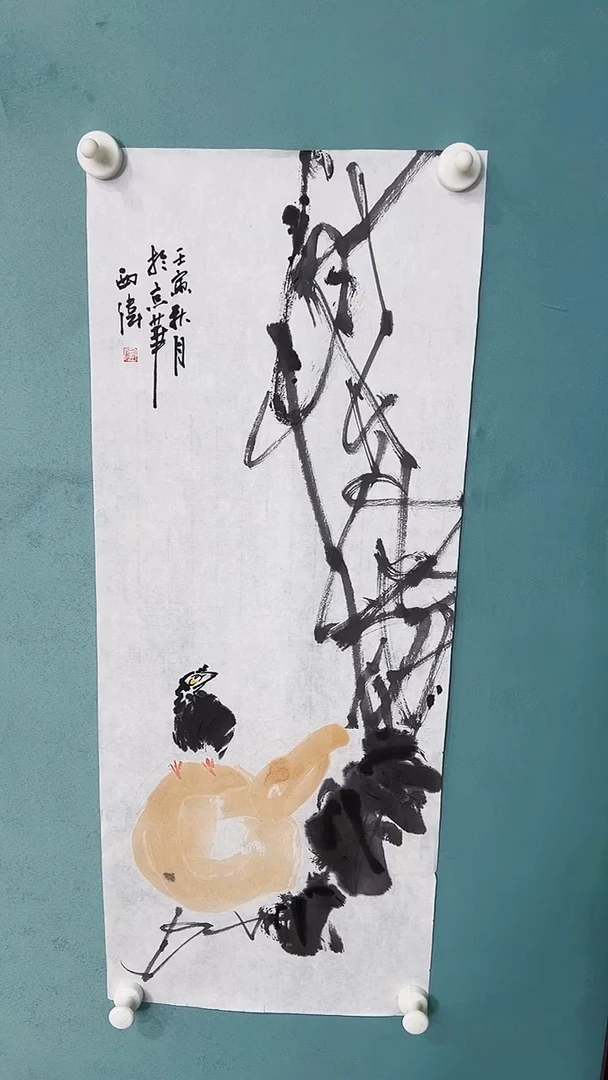 壬寅秋月
於京華
西偉